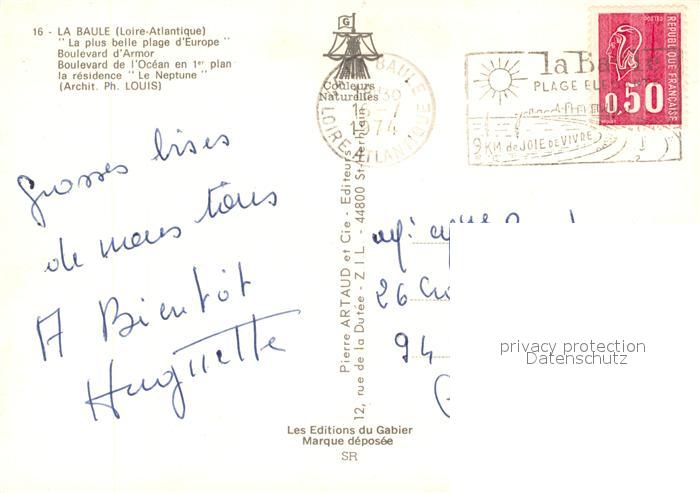 16 - LA BAULE (Loire-Atlantique)
" La plus belle plage d'Europe "
Boulevard d'Armor
Boulevard de l'Océan en 1er plan
la résidence " Le Neptune "
(Archit. Ph. LOUIS)
G
Couleurs
Naturelles
LA BAULE
16-7
1974
LOIRE-ATLANTIQUE
la
PLAGE
9 KM de JOIE DE VIVRE
POSTES
REPUBLIQUE FRANÇAISE
0,50
Grosses bises
de nous tous
A Bientôt
Huguette
Pierre ARTAUD et Cie - Editeurs
12, rue de la Dutée - Z I L - 44800 St-Herblain
26
94
privacy protection
Datenschutz
Les Editions du Gabier
Marque déposée
SR